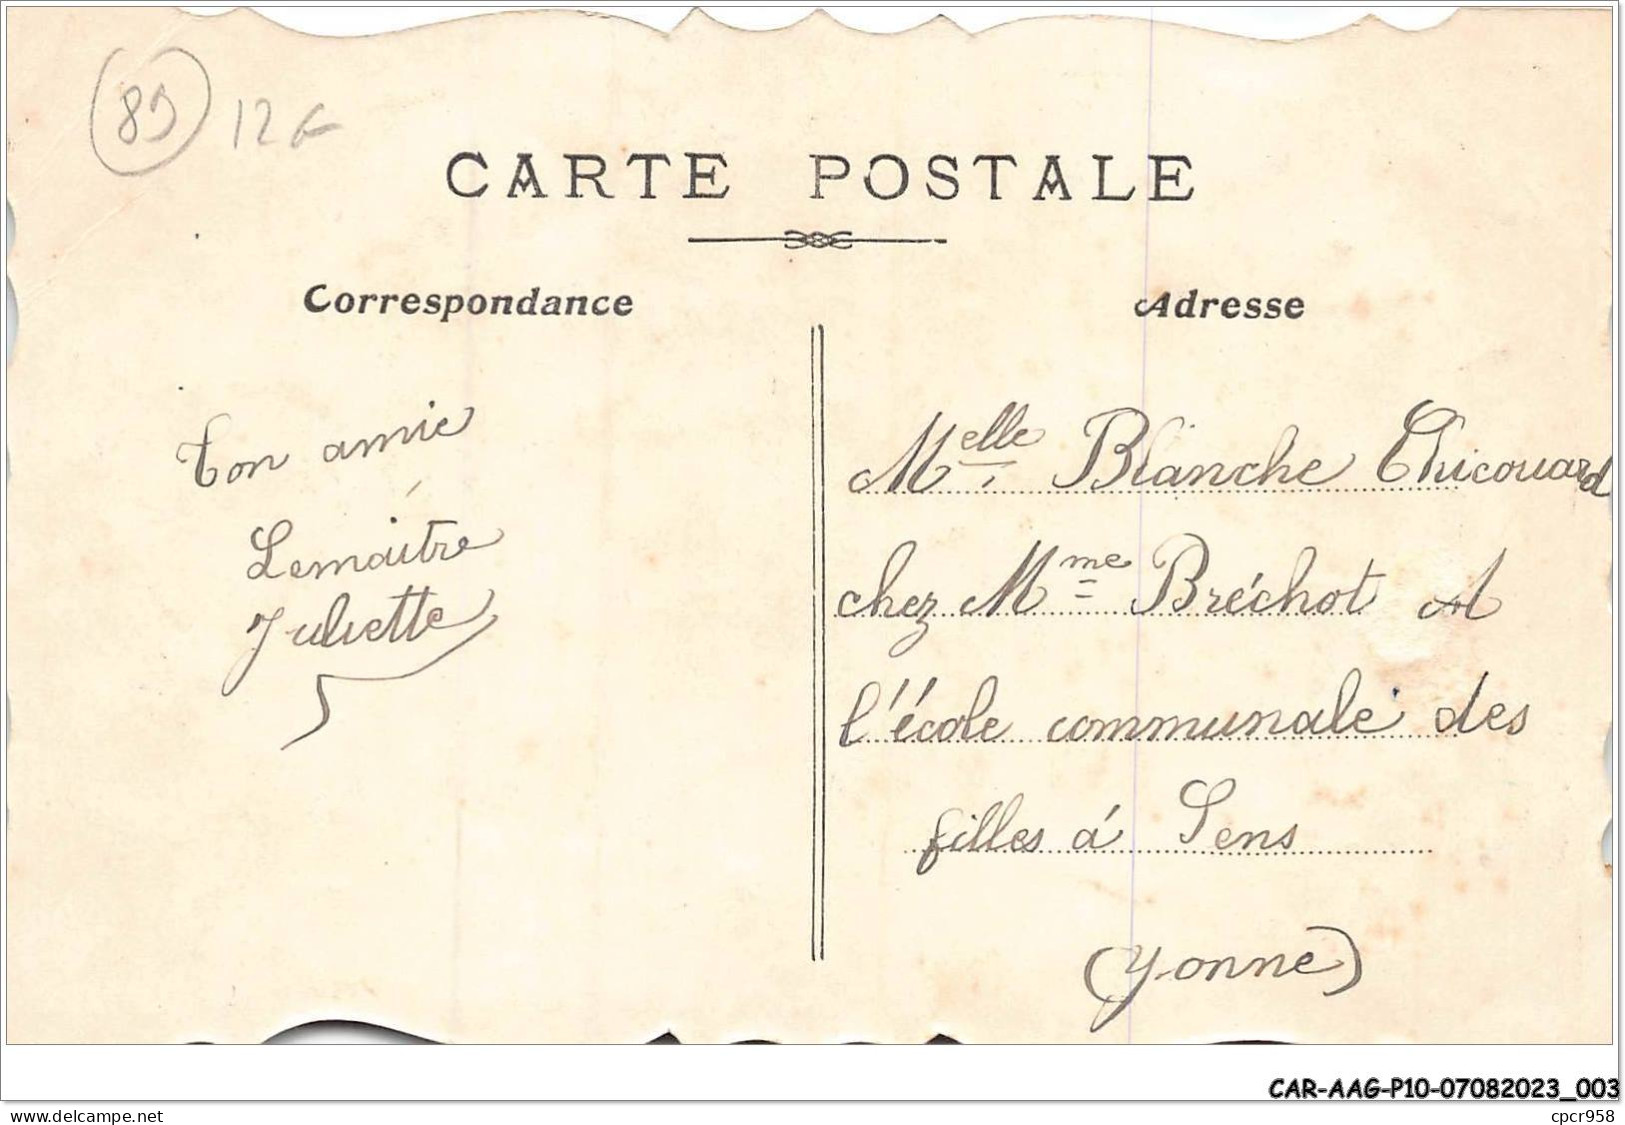 89 12€
CARTE POSTALE
Correspondance
Adresse
Ton amie
Lemaître
Juliette
Melle Blanche Thicouard
chez Mme Bréchot A
l'école communale des
filles á Sens
(Yonne)
CAR-AAG-P10-07082023_003
www.delcampe.net
cpcr958